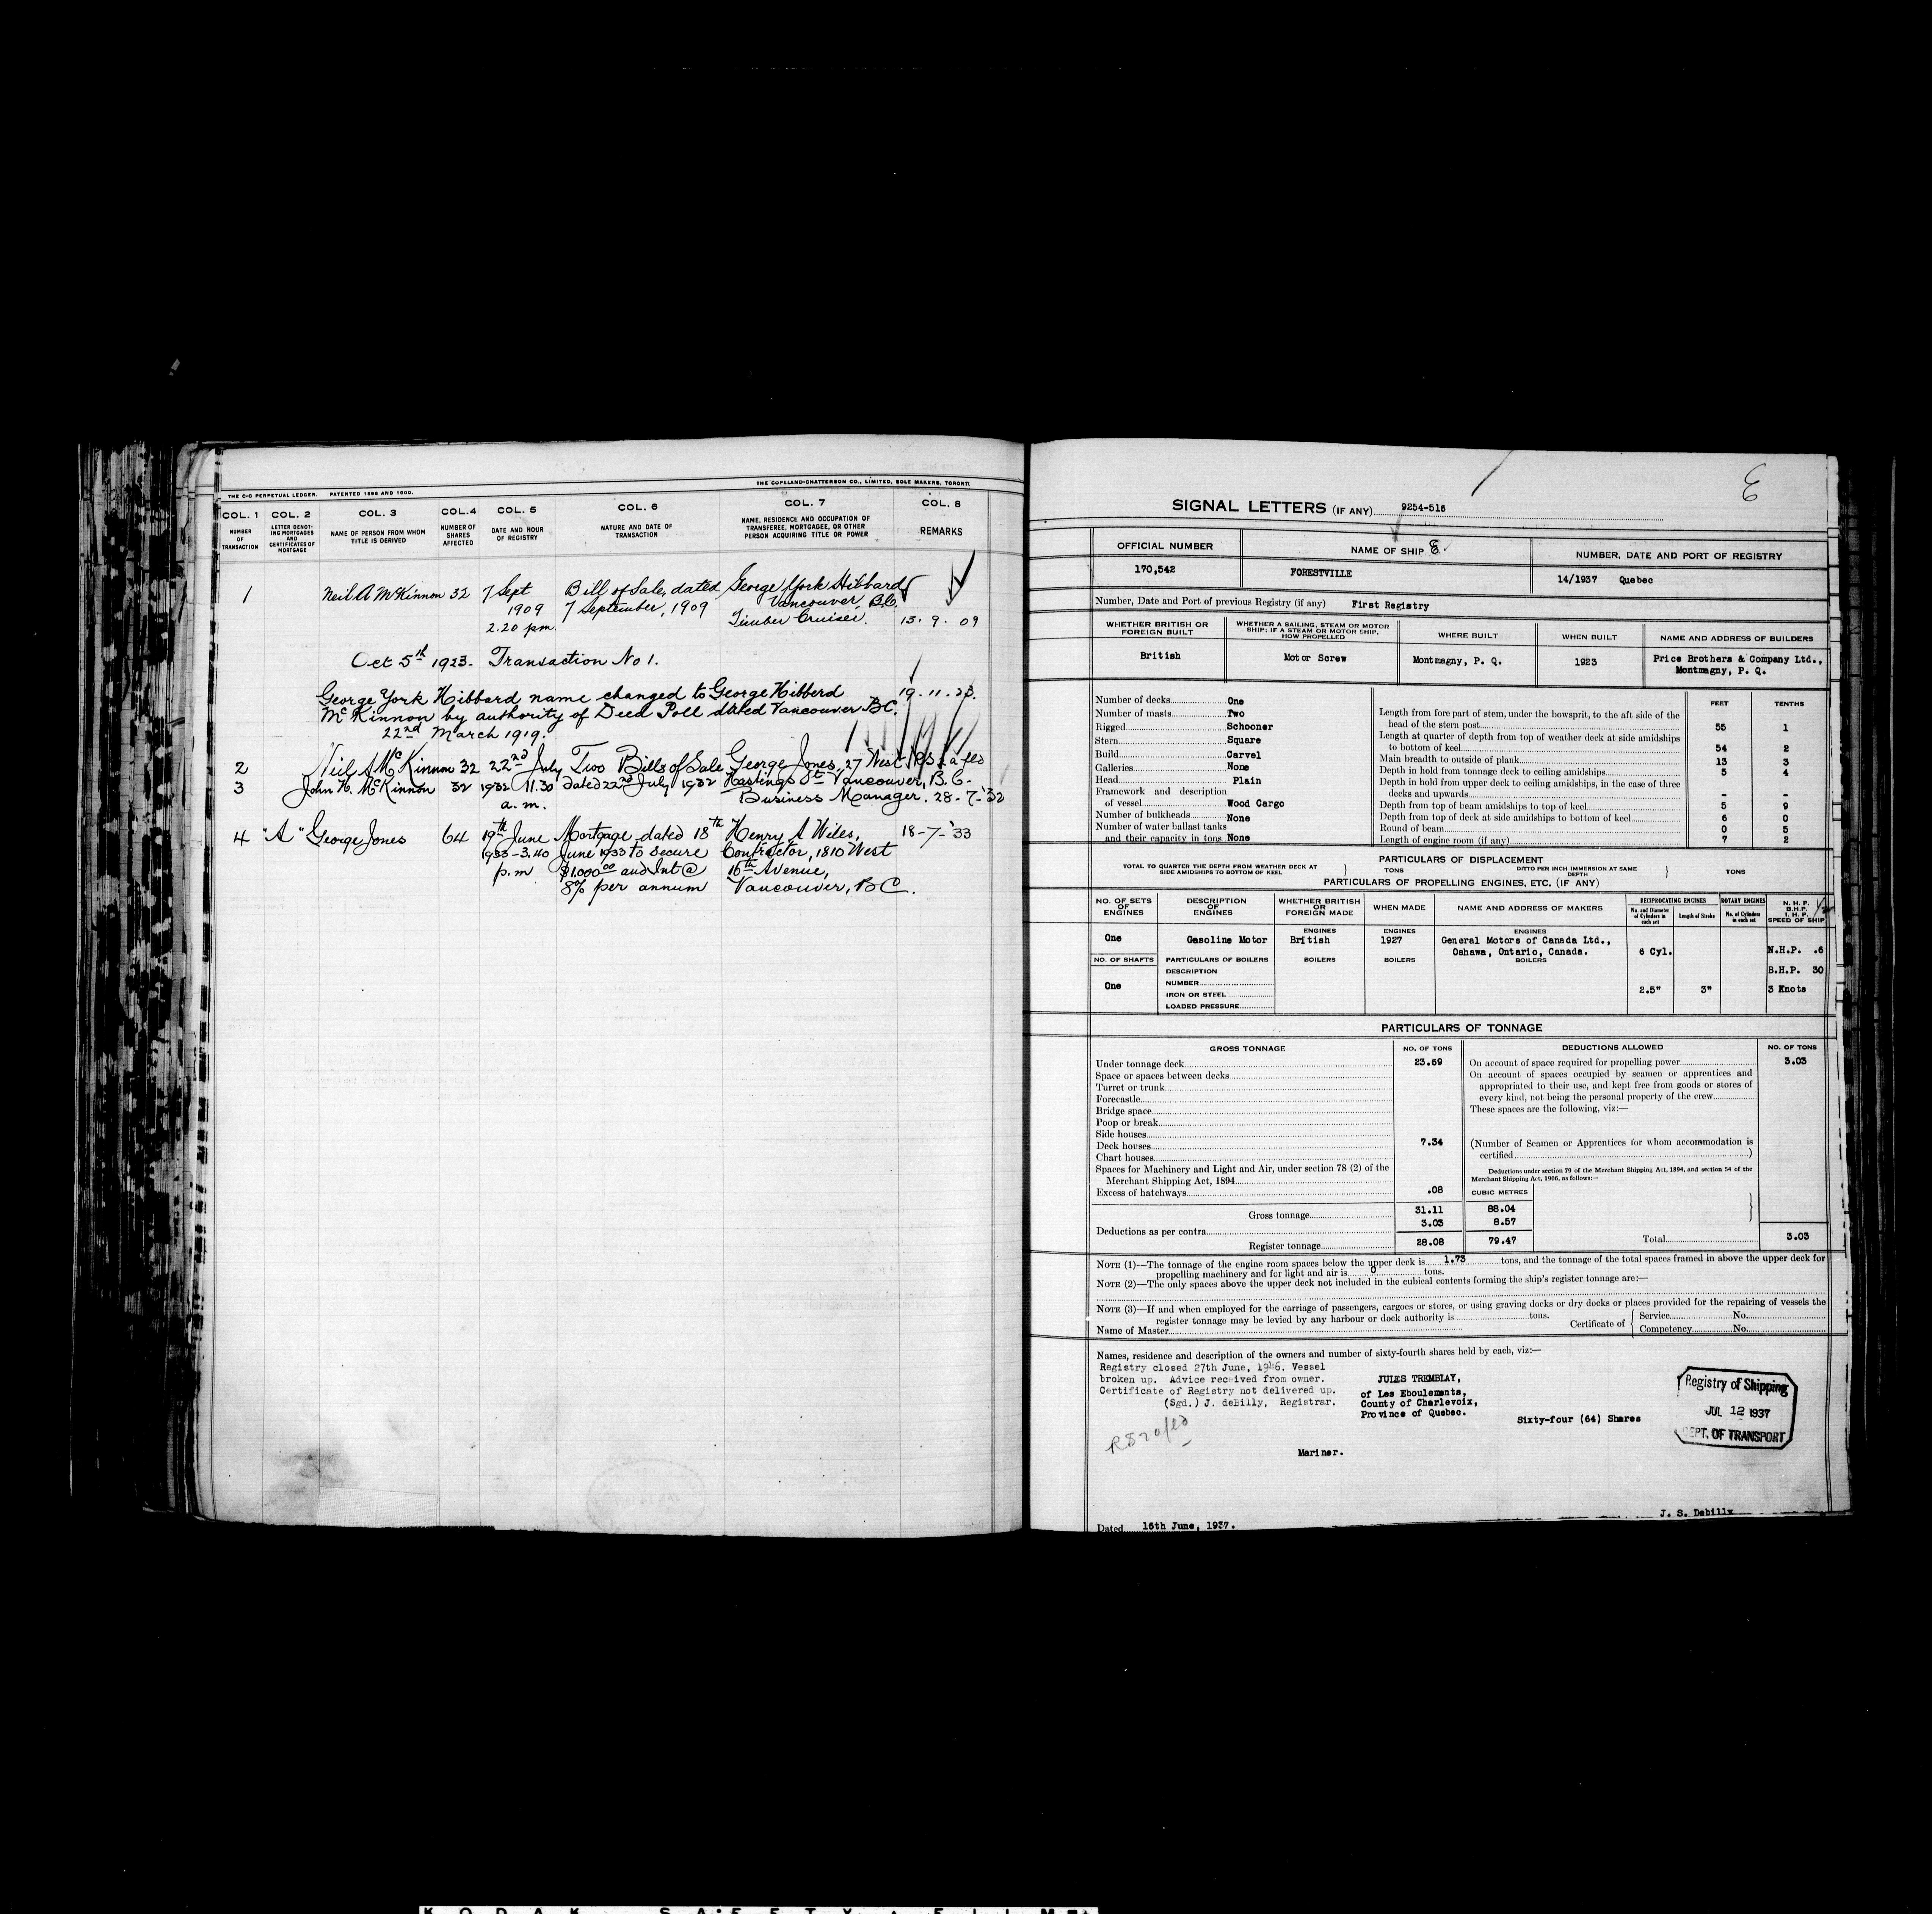 THE C-C PERPETUAL LEDGER. PATENTED 1896 AND 1900.
THE COPELAND-CHATTERSON CO., LIMITED, SOLE MAKERS, TORONTO
COL. 1 COL. 2 COL. 3 COL. 4 COL. 5 COL. 6 COL. 7 COL. 8
NUMBER OF TRANSACTION
LETTER DENOT-ING MORTGAGES AND CERTIFICATES OF MORTGAGE
NAME OF PERSON FROM WHOM TITLE IS DERIVED
NUMBER OF SHARES AFFECTED
DATE AND HOUR OF REGISTRY
NATURE AND DATE OF TRANSACTION
NAME, RESIDENCE AND OCCUPATION OF TRANSFEREE, MORTGAGEE, OR OTHER PERSON ACQUIRING TITLE OR POWER
REMARKS
1 Neil A McKinnon 32 7 Sept Bill of Sale, dated George York Hibbard
1909 7 September, 1909 Vancouver, B.C.
2.20 pm. Timber Cruiser. 13. 9. 09
Oct 5th 1923. Transaction No 1.
George York Hibbard name changed to George Hibberd 19.11.23.
McKinnon by authority of Deed Poll dated Vancouver BC.
22nd March 1919.
2 Neil A McKinnon 32 22nd July Two Bills of Sale George Jones, 27 West
3 John H. McKinnon 32 1932 11.30 dated 22nd July 1932 Hastings St Vancouver, B.C.
a.m. Business Manager. 28-7-'32
4 "A" George Jones 64 19th June Mortgage dated 18th Henry A Wiles, 18-7-'33
1933-3.40 June 1933 to secure Contractor, 1810 West
p.m $1.000.00 and Int @ 16th Avenue,
8% per annum Vancouver, BC.
E
SIGNAL LETTERS (IF ANY) 9254-516
OFFICIAL NUMBER NAME OF SHIP E NUMBER, DATE AND PORT OF REGISTRY
170,542 FORESTVILLE 14/1937 Quebec
Number, Date and Port of previous Registry (if any) First Registry
WHETHER BRITISH OR FOREIGN BUILT
WHETHER A SAILING, STEAM OR MOTOR SHIP; IF A STEAM OR MOTOR SHIP, HOW PROPELLED
WHERE BUILT
WHEN BUILT
NAME AND ADDRESS OF BUILDERS
British Motor Screw Montmagny, P. Q. 1923 Price Brothers & Company Ltd.,
Montmagny, P. Q.
Number of decks One
Number of masts Two
Rigged Schooner
Stern Square
Build Carvel
Galleries None
Head Plain
Framework and description
of vessel Wood Cargo
Number of bulkheads None
Number of water ballast tanks
and their capacity in tons None
FEET TENTHS
Length from fore part of stem, under the bowsprit, to the aft side of the
head of the stern post 55 1
Length at quarter of depth from top of weather deck at side amidships
to bottom of keel 54 2
Main breadth to outside of plank 13 3
Depth in hold from tonnage deck to ceiling amidships 5 4
Depth in hold from upper deck to ceiling amidships, in the case of three
decks and upwards - -
Depth from top of beam amidships to top of keel 5 9
Depth from top of deck at side amidships to bottom of keel 6 0
Round of beam 0 5
Length of engine room (if any) 7 2
PARTICULARS OF DISPLACEMENT
TOTAL TO QUARTER THE DEPTH FROM WEATHER DECK AT SIDE AMIDSHIPS TO BOTTOM OF KEEL } TONS DITTO PER INCH IMMERSION AT SAME DEPTH } TONS
PARTICULARS OF PROPELLING ENGINES, ETC. (IF ANY)
NO. OF SETS OF ENGINES
DESCRIPTION OF ENGINES
WHETHER BRITISH OR FOREIGN MADE
WHEN MADE
NAME AND ADDRESS OF MAKERS
RECIPROCATING ENGINES
No. and Diameter of Cylinders in each set
Length of Stroke
ROTARY ENGINES
No. of Cylinders in each set
N. H. P.
B.H.P.
I. H. P.
SPEED OF SHIP
ENGINES ENGINES ENGINES
One Gasoline Motor British 1927 General Motors of Canada Ltd.,
Oshawa, Ontario, Canada. 6 Cyl. N.H.P. .6
NO. OF SHAFTS PARTICULARS OF BOILERS BOILERS BOILERS BOILERS
DESCRIPTION B.H.P. 30
One NUMBER 2.5" 3" 3 Knots
IRON OR STEEL
LOADED PRESSURE
PARTICULARS OF TONNAGE
GROSS TONNAGE NO. OF TONS DEDUCTIONS ALLOWED NO. OF TONS
Under tonnage deck 23.69
Space or spaces between decks
Turret or trunk
Forecastle
Bridge space
Poop or break
Side houses
Deck houses 7.34
Chart houses
Spaces for Machinery and Light and Air, under section 78 (2) of the
Merchant Shipping Act, 1894
Excess of hatchways .08
Gross tonnage 31.11 88.04
Deductions as per contra 3.03 8.57
Register tonnage 28.08 79.47
On account of space required for propelling power 3.03
On account of spaces occupied by seamen or apprentices and
appropriated to their use, and kept free from goods or stores of
every kind, not being the personal property of the crew
These spaces are the following, viz:—
(Number of Seamen or Apprentices for whom accommodation is
certified )
Deductions under section 79 of the Merchant Shipping Act, 1894, and section 54 of the
Merchant Shipping Act, 1906, as follows:—
CUBIC METRES
Total 3.03
NOTE (1)—The tonnage of the engine room spaces below the upper deck is 1.73 tons, and the tonnage of the total spaces framed in above the upper deck for
propelling machinery and for light and air is 0 tons.
NOTE (2)—The only spaces above the upper deck not included in the cubical contents forming the ship's register tonnage are:—
NOTE (3)—If and when employed for the carriage of passengers, cargoes or stores, or using graving docks or dry docks or places provided for the repairing of vessels the
register tonnage may be levied by any harbour or dock authority is tons.
Name of Master
Certificate of { Service No.
Competency No.
Names, residence and description of the owners and number of sixty-fourth shares held by each, viz:—
Registry closed 27th June, 1946. Vessel
broken up. Advice received from owner.
Certificate of Registry not delivered up.
(Sgd.) J. deBilly, Registrar.
JULES TREMBLAY,
of Les Eboulements,
County of Charlevoix,
Province of Quebec.
Sixty-four (64) Shares
Mariner.
Registry of Shipping
JUL 12 1937
DEPT. OF TRANSPORT
J. S. Debilly
Dated 16th June, 1937.
KODAK SAFETY FILM